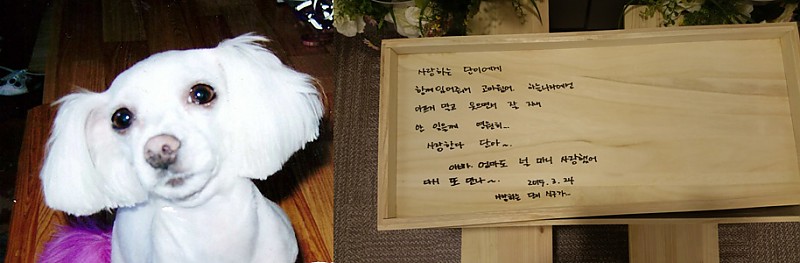 사랑하는 단이에게
함께 있어줘서 고마웠어. 하늘나라에선
아프지 말고 웃으면서 잘 지내
안 잊을께 영원히...
사랑한다 단아~.
아빠, 엄마도 널 많이 사랑했어
다시 또 만나~. 2017. 3. 24
사랑하는 단이 식구가...